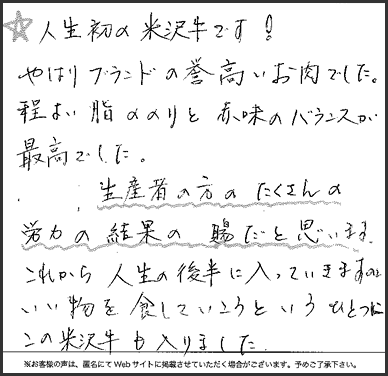 人生初の米沢牛です!
やはりブランドの誉高いお肉でした。
程よい脂ののりと赤味のバランスが
最高でした。
生産者の方のたくさんの
労力の結果の賜だと思います。
これから人生の後半に入っていきますのに
いい物を食していこうというひとつに
この米沢牛も入りました
※お客様の声は、匿名にてWebサイトに掲載させていただく場合がございます。予めご了承下さい。